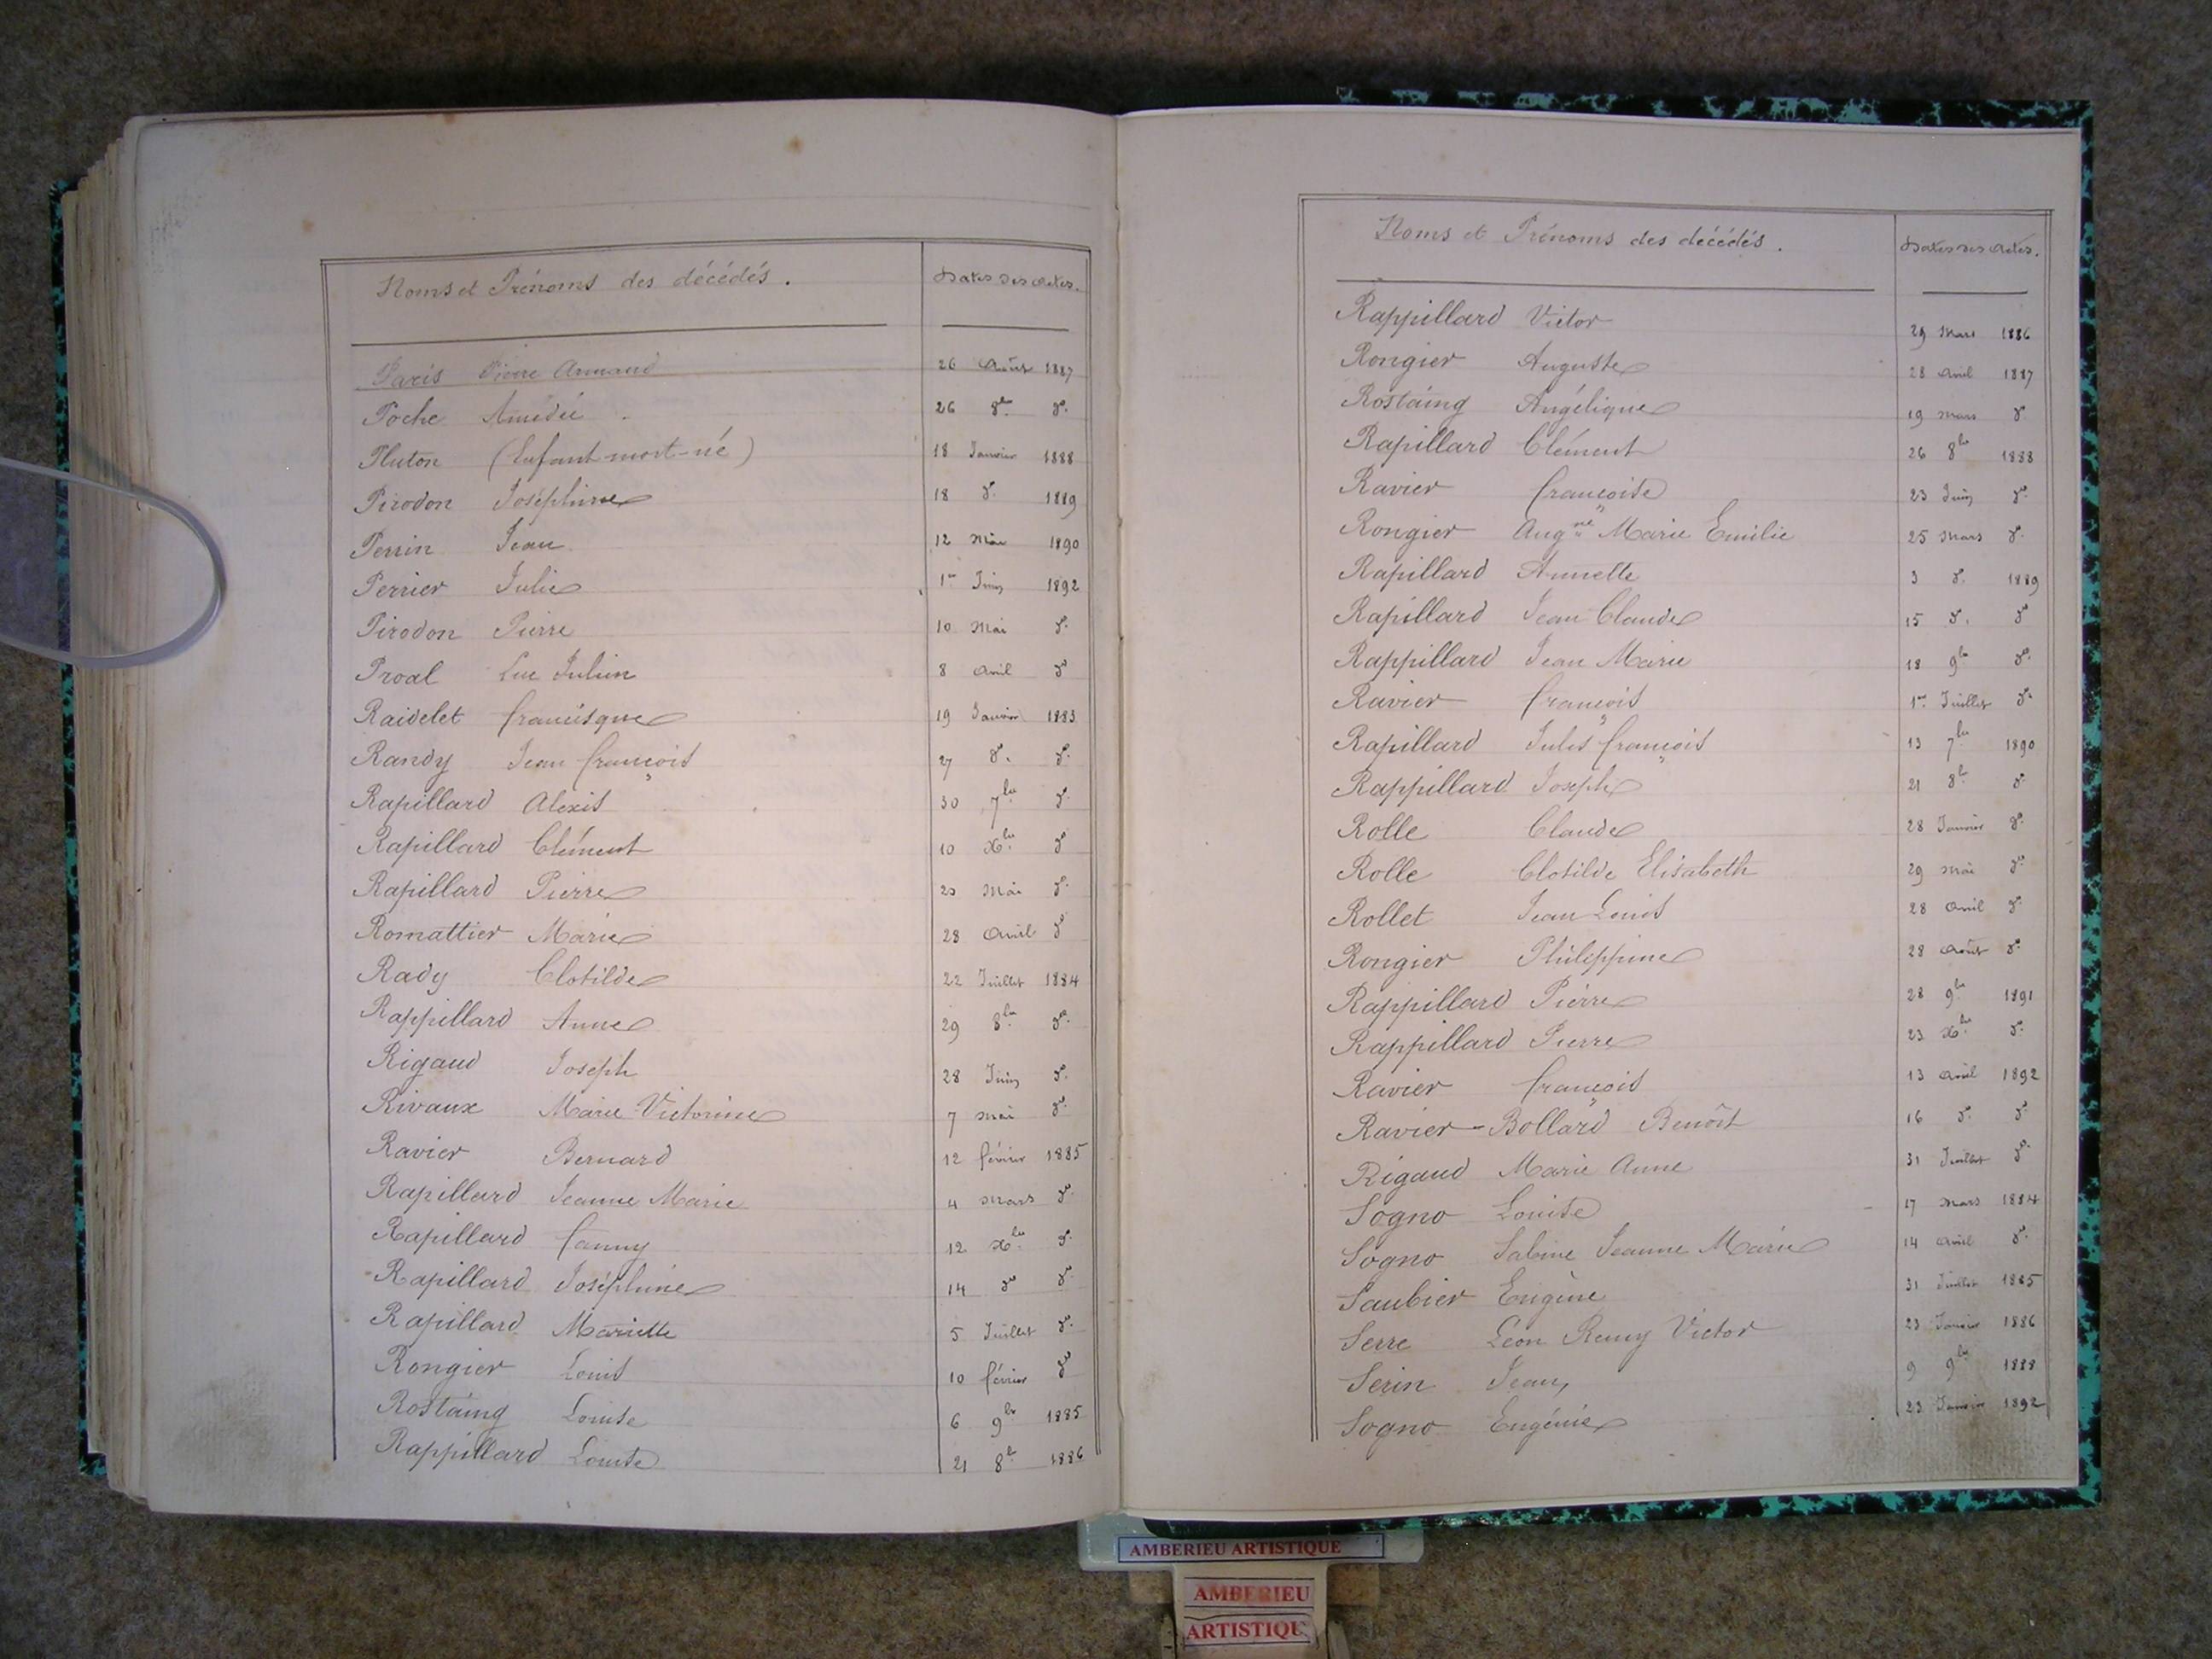 Noms et Prénoms des décédés. Dates des actes.
Paris Pierre Armand 26 Août 1887
Poche Amédée 26 8bre do.
Pluton (Enfant mort-né) 18 Janvier 1888
Pirodon Joséphine 18 do. 1889
Perrin Jean 12 Mai 1890
Perrier Julie 1er Juin 1892
Pirodon Pierre 10 Mai do.
Proal Luc Julien 8 Avril do
Raidelet Francisque 19 Janvier 1883
Randy Jean François 27 do. do.
Rapillard Alexis 30 7bre do.
Rapillard Clément 10 Xbre do
Rapillard Pierre 20 Mai do.
Romattier Marie 28 Avril do
Rady Clotilde 22 Juillet 1884
Rappillard Anne 29 8bre do.
Rigaud Joseph 28 Juin do.
Rivaux Marie Victorine 7 Mai do.
Ravier Bernard 12 février 1885
Rapillard Jeanne Marie 4 Mars do.
Rapillard fanny 12 Xbre do.
Rapillard Joséphine 14 do do.
Rapillard Mariette 5 Juillet do.
Rongier Louis 10 février do
Rostaing Louise 6 9bre 1885
Rappillard Louise 21 8bre 1886
Noms et Prénoms des décédés. Dates des actes.
Rappillard Victor 29 Mars 1886
Rongier Auguste 28 Avril 1887
Rostaing Angélique 19 Mars do
Rapillard Clément 26 8bre 1888
Ravier françoise 23 Juin do.
Rongier Augne Marie Emilie 25 Mars do.
Rapillard Annette 3 do. 1889
Rapillard Jean Claude 15 do. do
Rappillard Jean Marie 18 9bre do.
Ravier françois 1er Juillet do.
Rapillard Jules françois 13 7bre 1890
Rappillard Joseph 21 8bre do
Rolle Claude 28 Janvier do.
Rolle Clotilde Elisabeth 29 Mai do.
Rollet Jean Louis 28 Avril do.
Rongier Philippine 28 Août do.
Rappillard Pierre 28 9bre 1891
Rappillard Pierre 23 Xbre do.
Ravier françois 13 Avril 1892
Ravier-Bollard Benoît 16 do. do.
Rigaud Marie Anne 31 Juillet do.
Sogno Louise 17 Mars 1884
Sogno Sabine Jeanne Marie 14 Avril do.
Saubier Eugène 31 Juillet 1885
Serre Léon Remy Victor 23 Janvier 1886
Serin Jean 9 9bre 1888
Sogno Eugénie 23 Janvier 1892
AMBERIEU ARTISTIQUE
AMBERIEU
ARTISTIQU